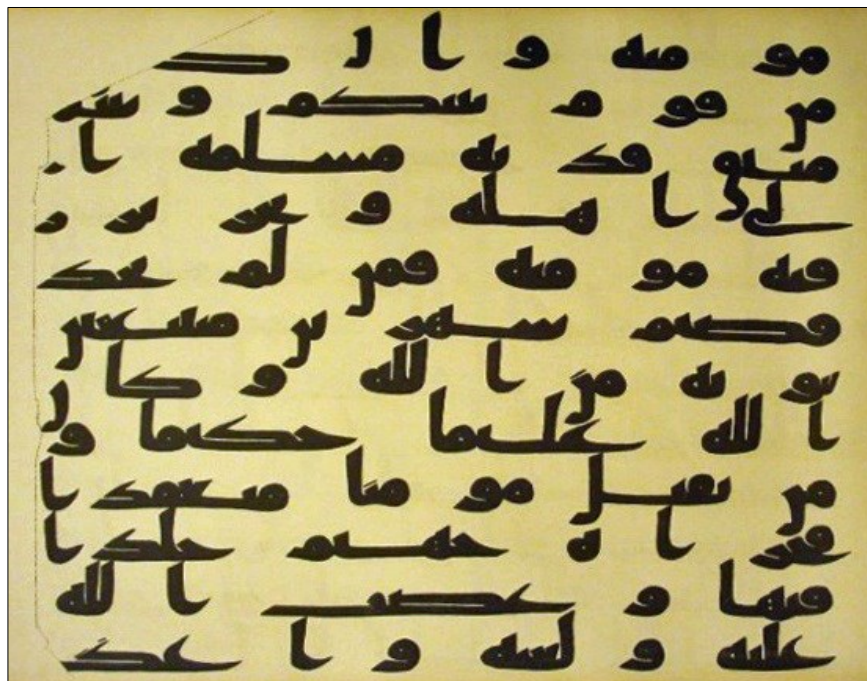 مومنه وان كان
من قوم بينكم وبينهم
ميثق فديه مسلمه ا
لى اهله وتحرير ر
قبه مومنه فمن لم يجد
فصيم شهرين متتبعين
توبه من الله وكان
الله عليما حكيما و
من يقتل مومنا متعمدا
فجزاه جهنم خلدا
فيها وغضب الله
عليه ولعنه واعد